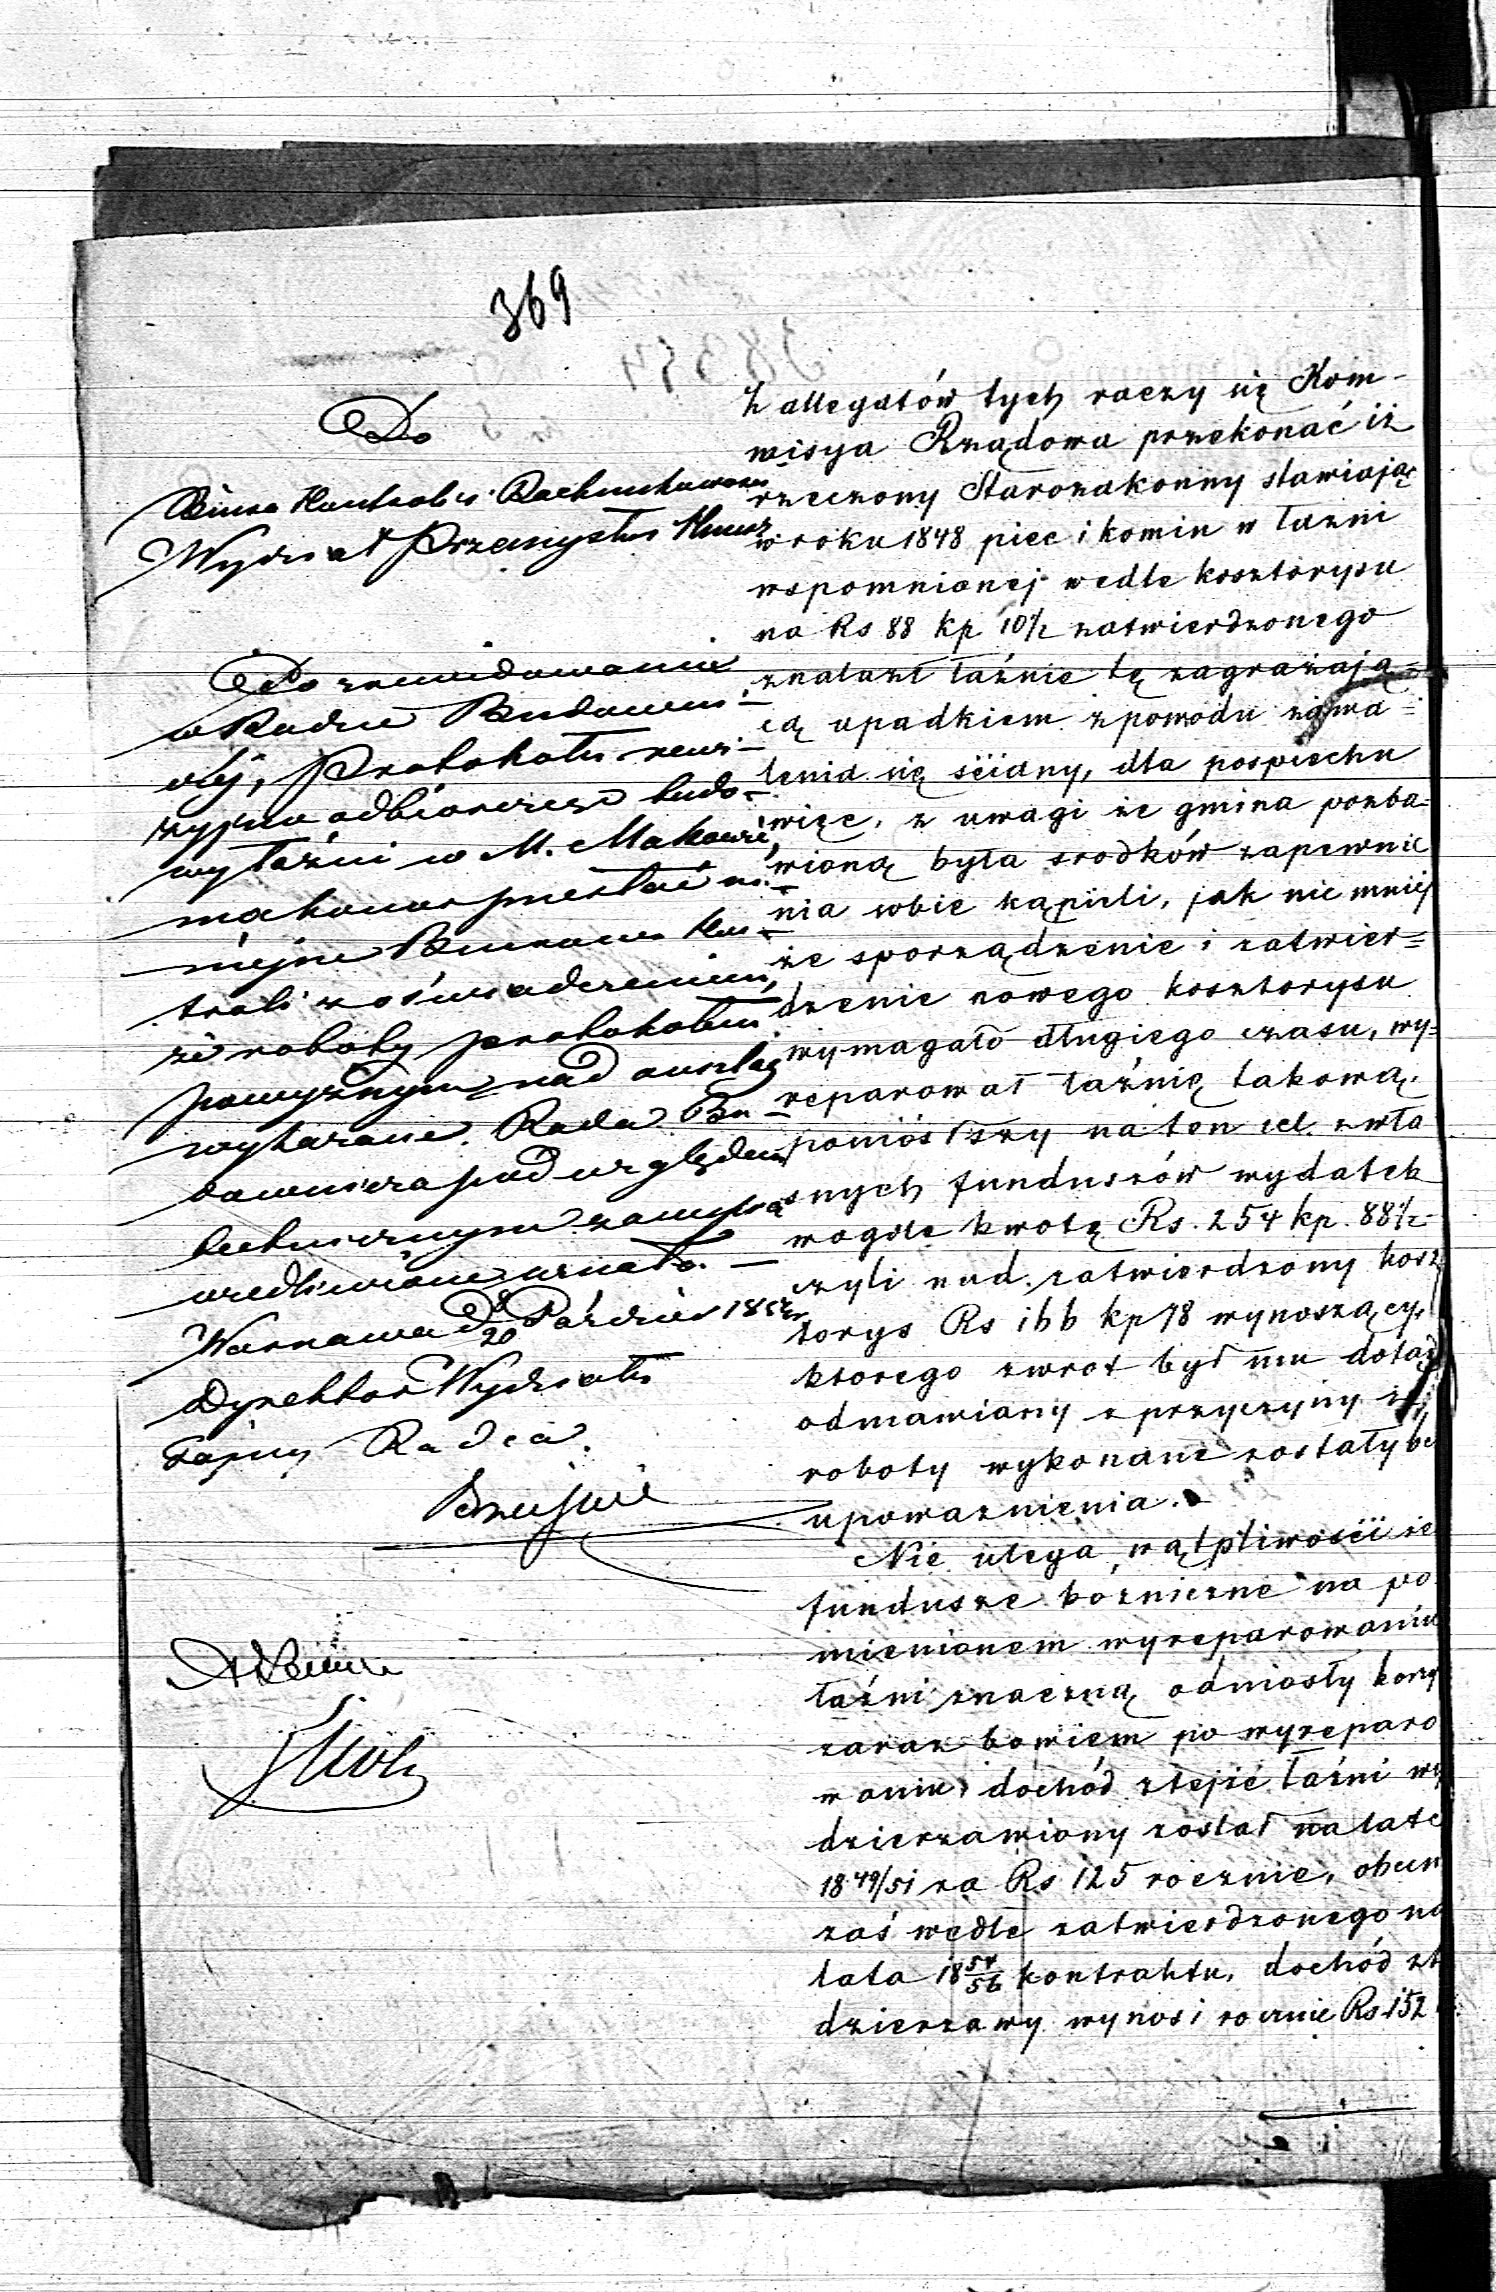 369
Do
Biura Kontroli i Rachunkowości
Wydział Przemysłu Kunsz
Do zrewidowania
w Radzie Budowni-
czéj, Protokołu rewi-
zyjno odbiorczego budo-
wy łaźni w M. Makowie,
ma honor przesłać ni-
niejsze Biurowi Kon-
troli z oświadczeniem,
że roboty protokołem
powyższym nad anszlag
wykazane. Rada Bu-
downicza pod względem
technicznym za uspra-
wiedliwione uznała. —
Warszawa d. 8/20 Paździer 185
Dyrektor Wydziału
Tajny Radca.
Z allegatów tych raczy się Kom-
misya Rządowa przekonać iż
rzeczony Starozakonny stawiając
w roku 1848 piec i komin w łazni
wspomnionej wedle kosztorysu
na Rs 88 kp 10½ zatwierdzonego
znalazł łaźnie tę zagrażają=
cą upadkiem z powodu zawa=
lenia się sciany, dla pospiechu
więc, z uwagi że gmina pozba=
wioną była srodków zapewnie
nia sobie kąpieli, jak nie mniej
że sporządzenie i zatwier=
dzenie nowego kosztorysu
wymagało długiego czasu, wy=
reparował łaźnię takową.
poniosłszy na ten cel z wła
snych funduszów wydatek
wogóle kwotę Rs. 254 kp. 88½
czyli nad zatwierdzony kosz
torys Rs 166 kp 78 wynoszący,
ktorego zwrot był mu dotąd
odmawiany z przyczyny iż
roboty wykonane zostały be
upoważnienia.
Nie ulega wątpliwości że
fundusze bóżniczne na po
mienionem wyreparowaniu
łaźni znaczną odniosły korzy
zaraz bowiem po wyreparo
waniu dochód z tejże łaźni wy
dzierzawiony został na lata
1849/51 za Rs 125 rocznie, obecn
zaś wedle zatwierdzonego na
lata 1854/56 kontraktu, dochód z t
dzierzawy wynosi rocznie Rs 152